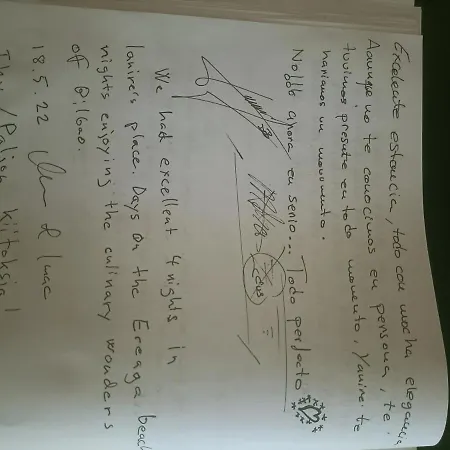 Excelente estancia, todo con mucha elegancia
Aunque no te conocimos en persona, te
tuvimos presente en todo momento, Yanire te
haríamos un monumento.
No ahora en serio... Todo perfecto
We had excellent 4 nights in
Yanire's place. Days on the Ereaga beach
nights enjoying the culinary wonders
of Bilbao.
18.5.22 & Imac
Paljon kiitoksia!